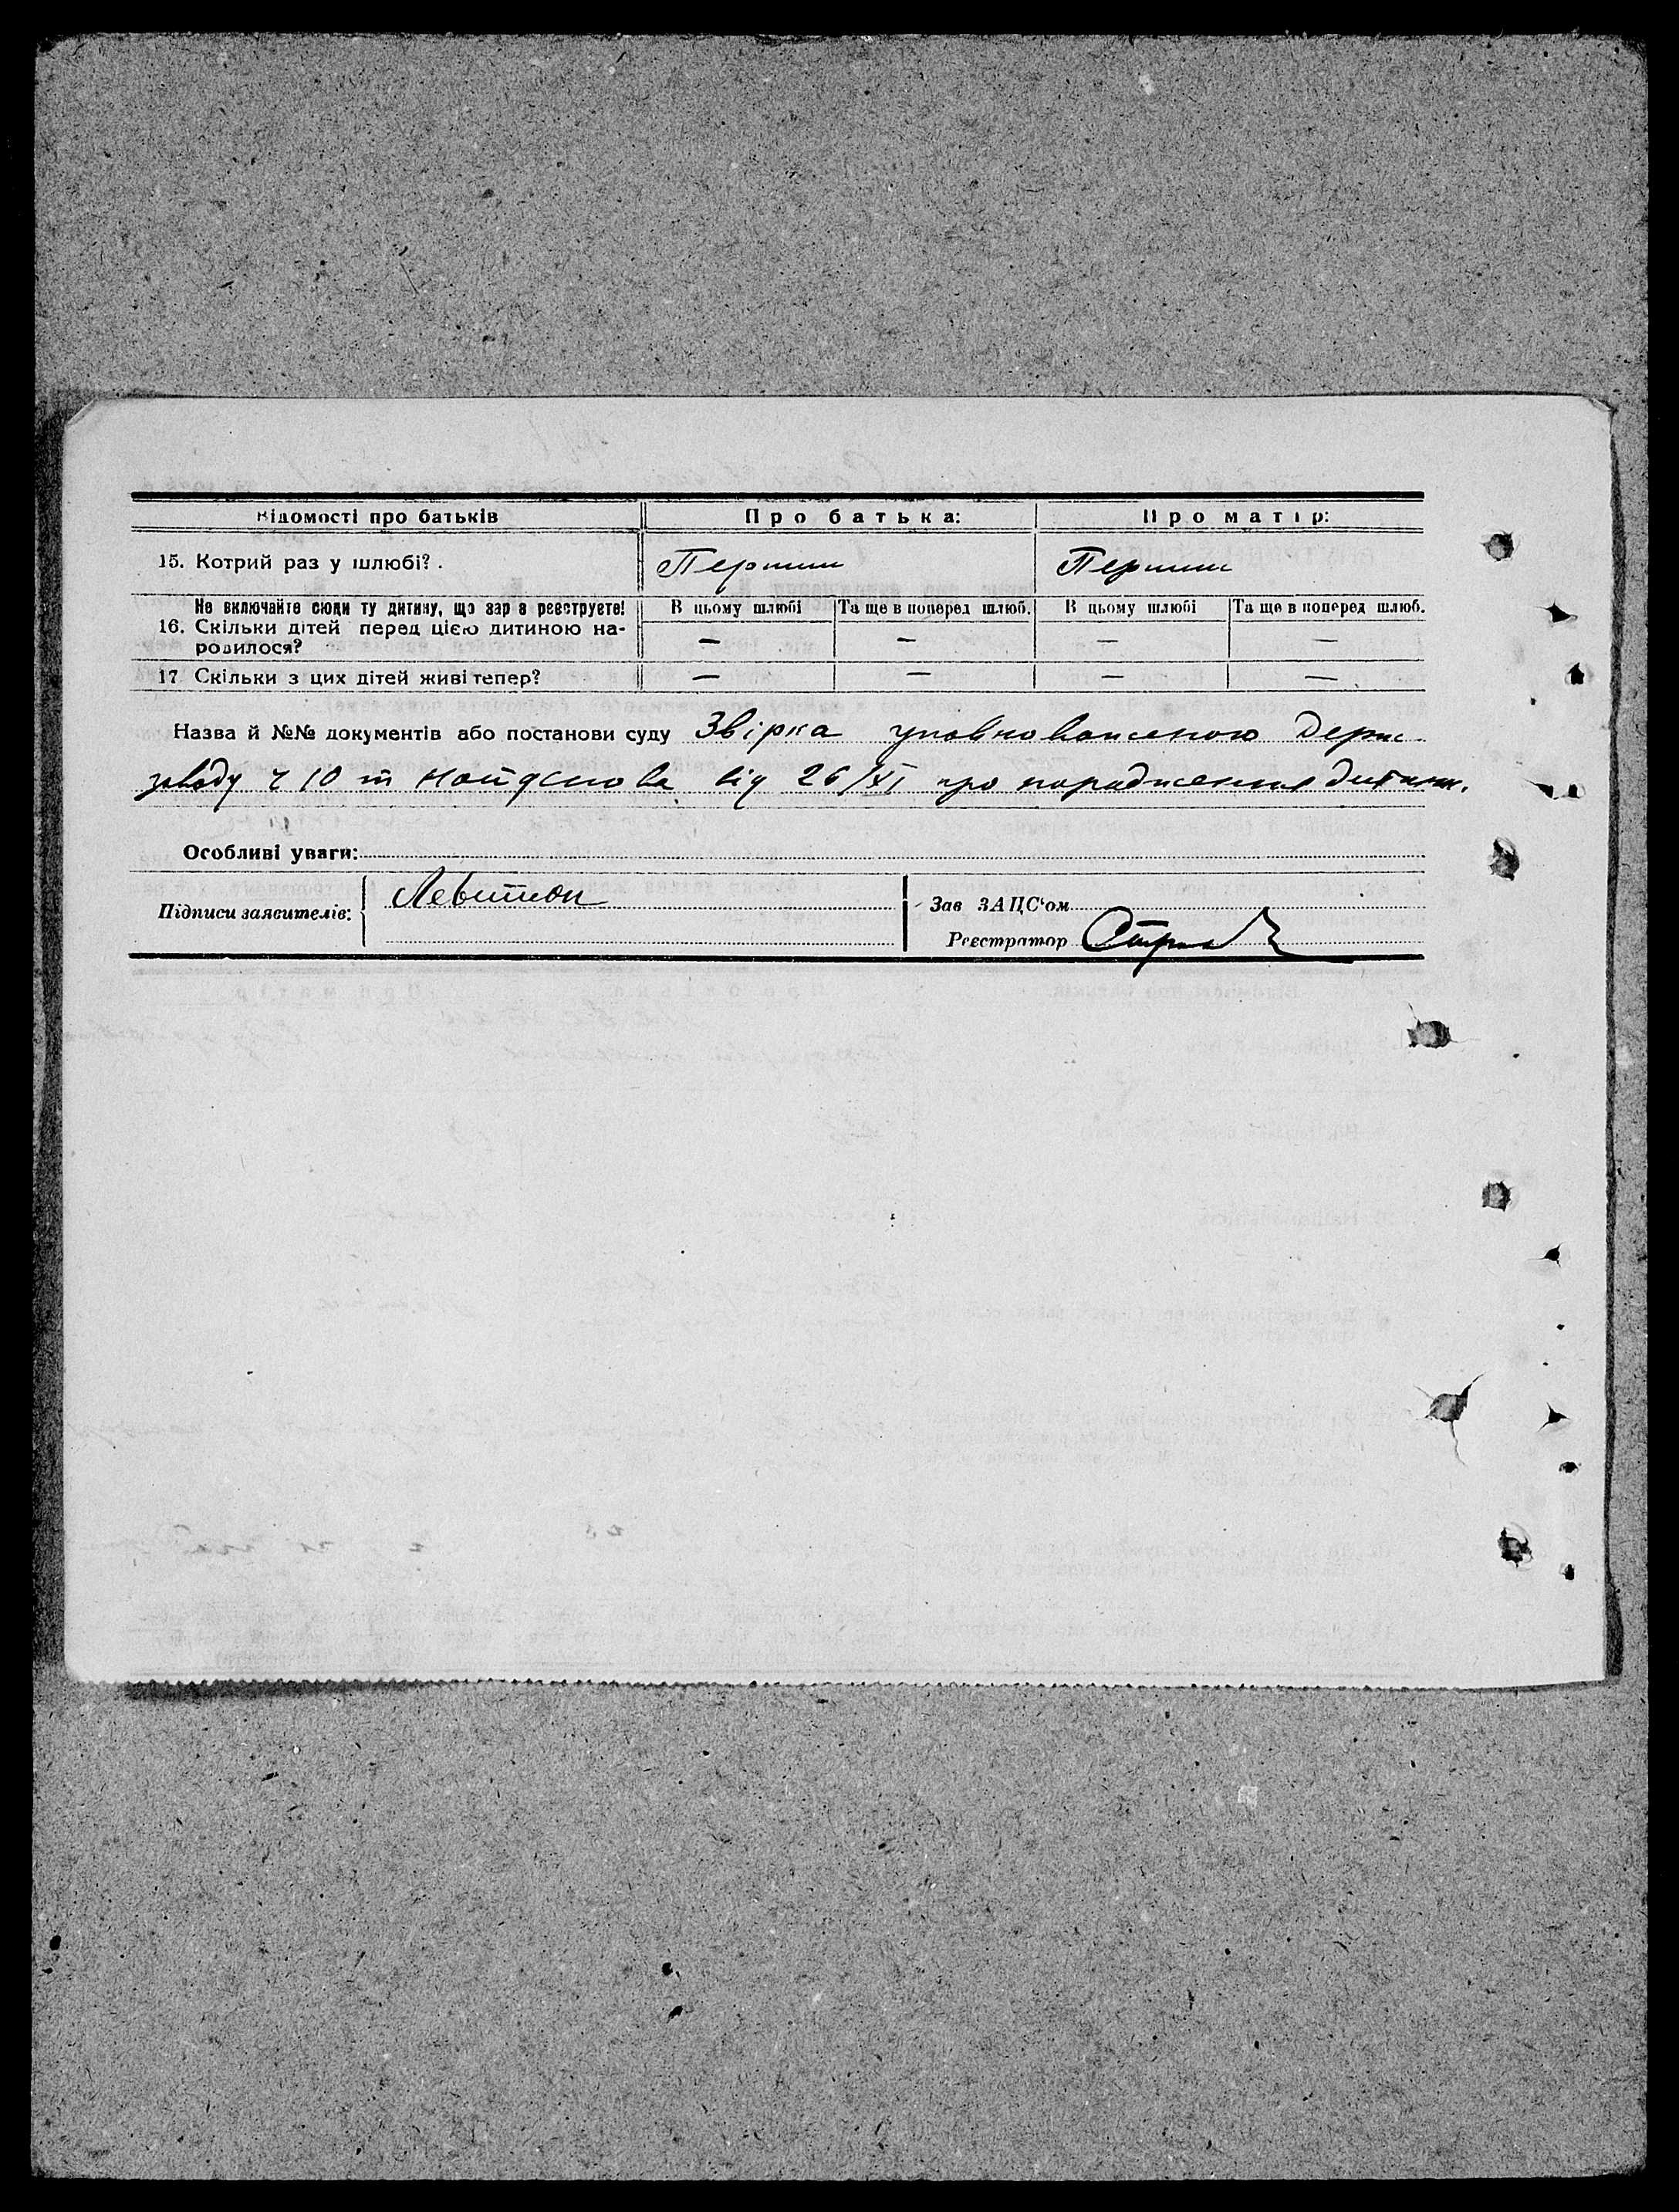 Відомості про батьків Про батька: Про матір:
15. Котрий раз у шлюбі? Перший Перший
Не включайте сюди ту дитину, що зар з реєструєте! В цьому шлюбі Та ще в поперед шлюб. В цьому шлюбі Та ще в поперед шлюб.
16. Скільки дітей перед цією дитиною на-
родилося? — — — —
17 Скільки з цих дітей живі тепер? — — — —
Назва й №№ документів або постанови суду Звірка уповноваженого Держ
заводу ч 10 від 26/XI про породження дитини.
Особливі уваги:
Підписи заявителів: Левитон
Зав ЗАЦС'ом
Реєстратор